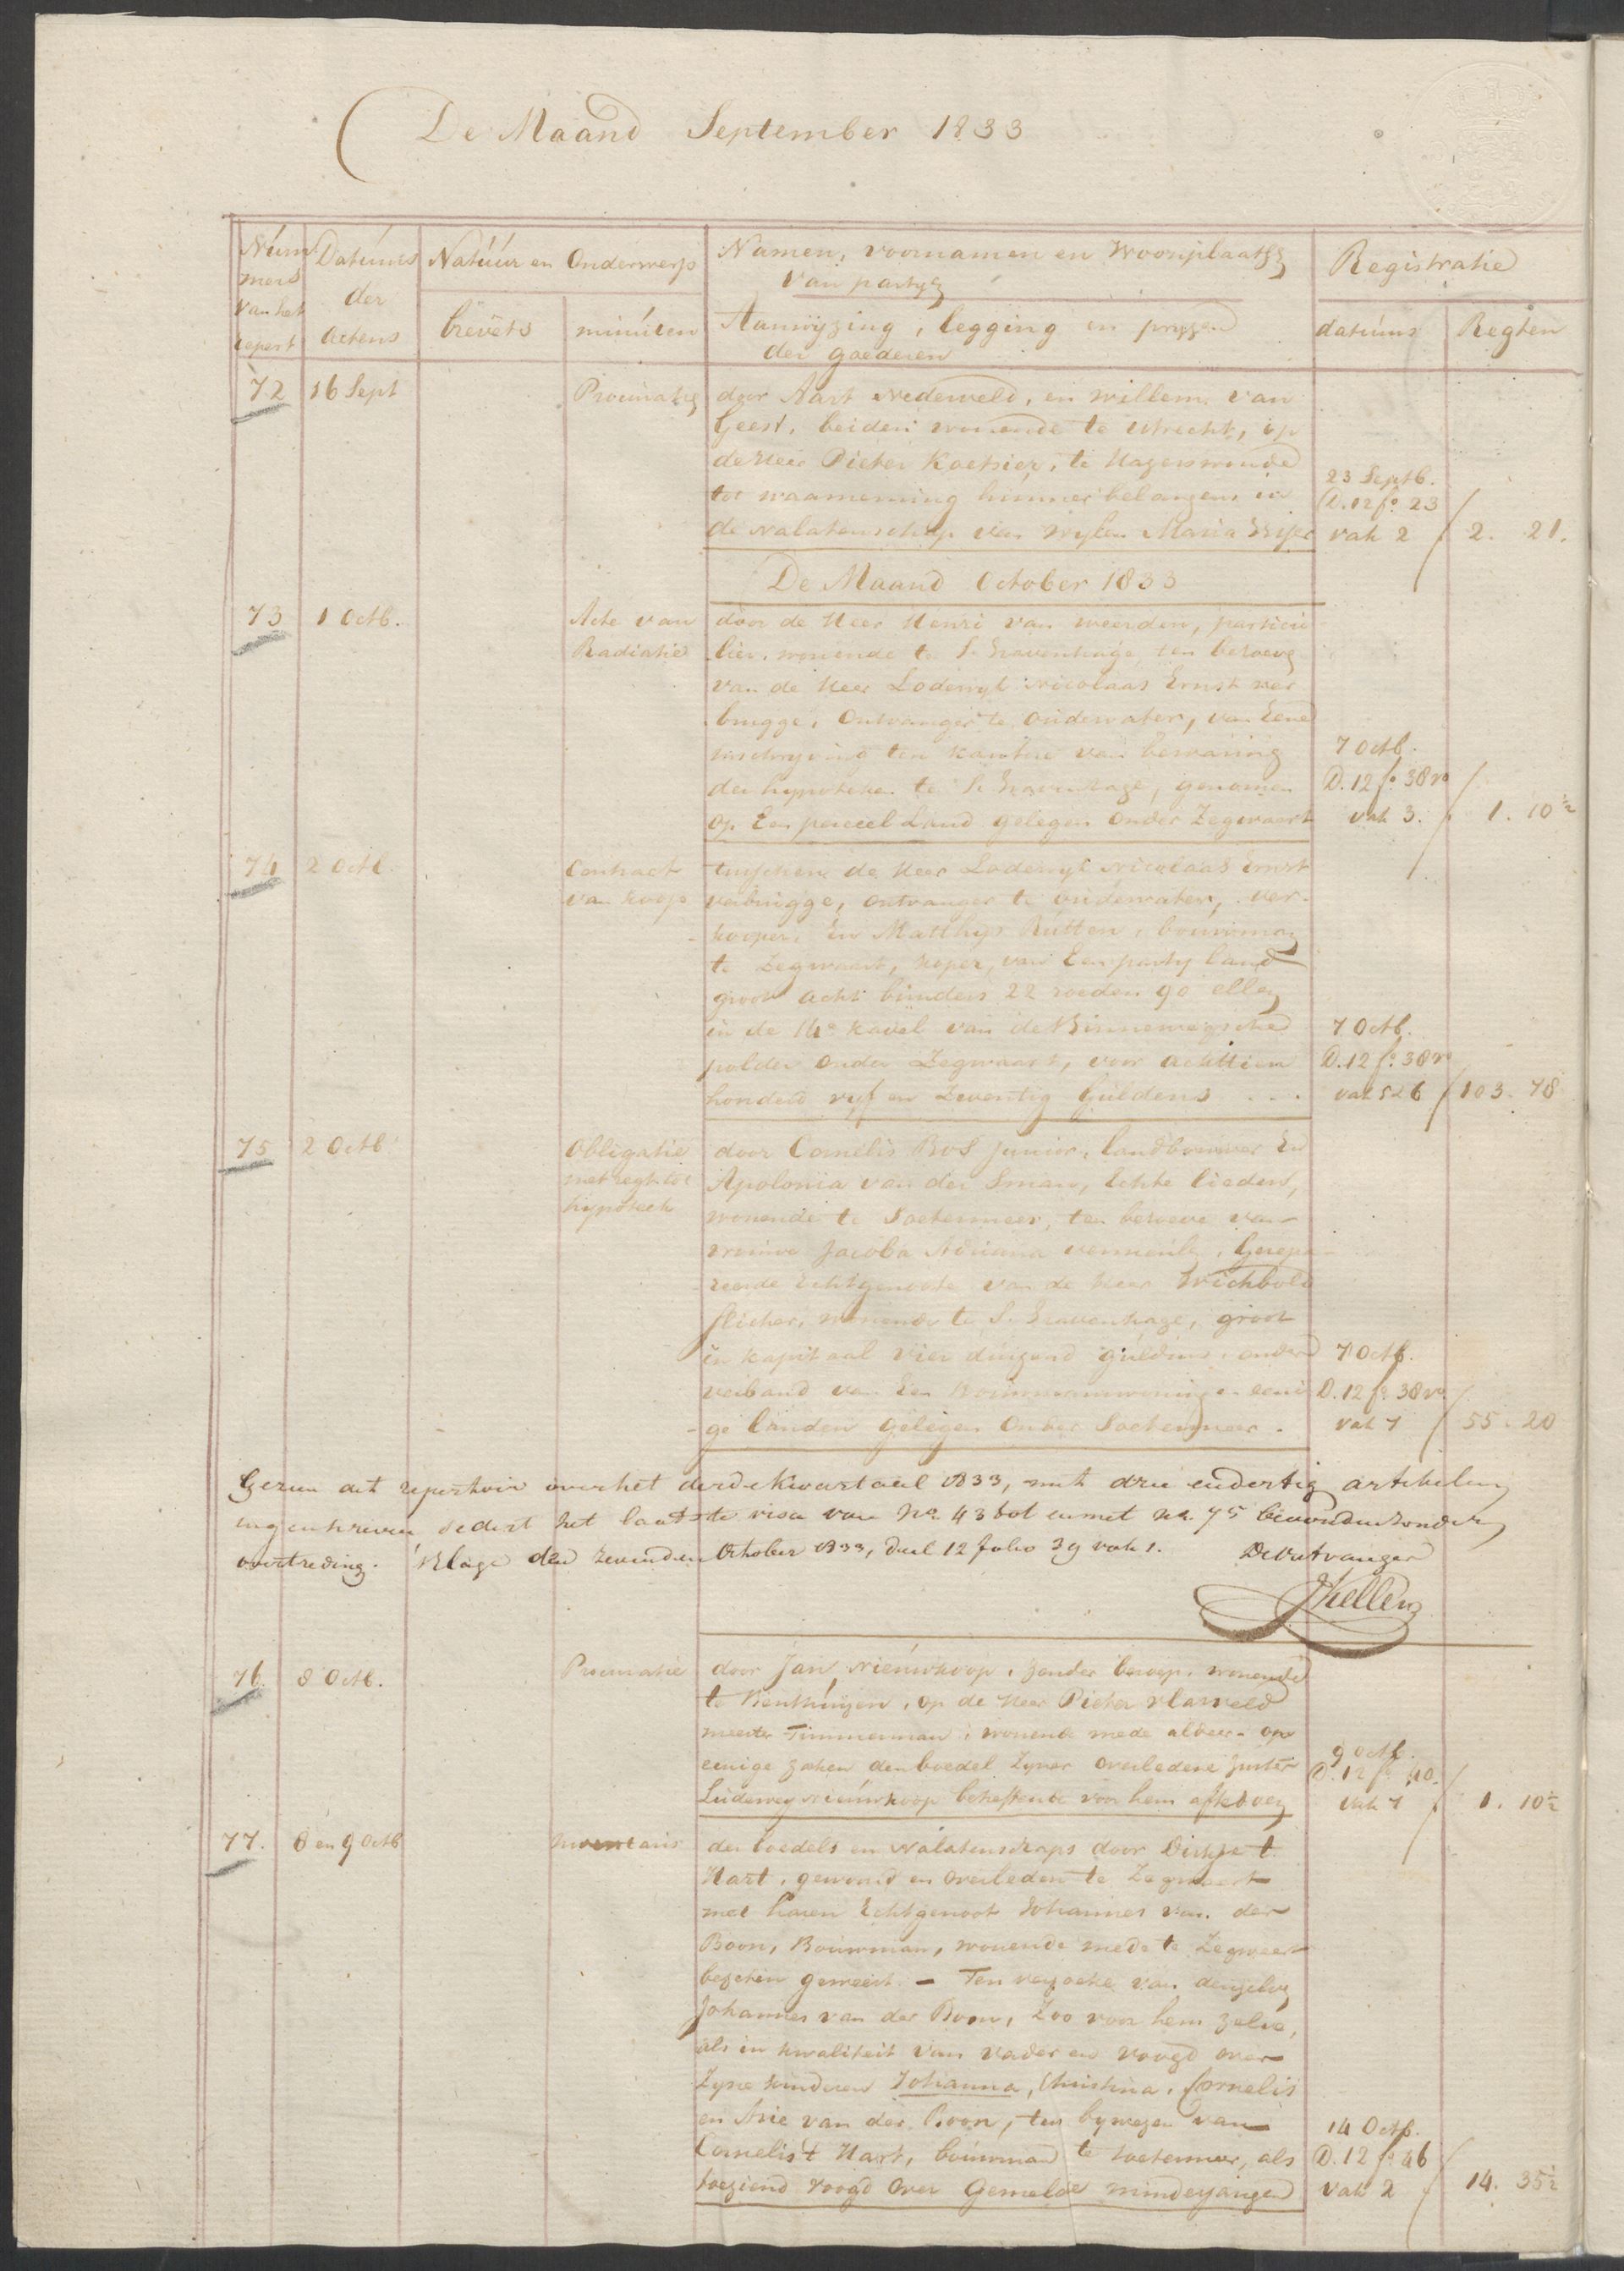 De Maand September 1833
Num Datums Natuur en Onderwerp Namen, voornamen en Woonplaatsen Registratie
mers der van partyen
van het actens brevets minuten Aanwyzing, legging en pryzen datums Regten
repert der goederen
72 16 Sept Procuratie door Aart Nederveld, en Willem van
Geest, beiden wonende te Utrecht, op
de Heer Pieter Koetsier, te Hazerswoude 23 Septb.
tot waarneming hunner belangens in D. 12 fo. 23
de nalatenschap van wylen Maria vak 2 2. 21.
De Maand October 1833
73 1 Octb. Acte van door de Heer Henri van Weerden, particu
Radiatie lier, wonende te S. Gravenhage, ten behoeve
van de Heer Lodewyk Nicolaas Ernst ver
brugge, Ontvanger te Oudewater, van Eene
inschryving ten kantore van bewaring 7 Octb.
der hypotheken te S. Gravenhage, genomen D. 12 fo. 38 vo
op Een perceel Land gelegen onder Zegwaart vak 3. 1. 10½
74 2 Octb. Contract tusschen de Heer Lodewyk Nicolaas Ernst
van koop verbrugge, ontvanger te Oudewater, ver-
kooper, En Matthys Rutten, bouwman
te Zegwaart, koper, van Een party land
groot acht bunders 22 roeden 90 ellen
in de 14e kavel van de Binnewegsche 7 Octb.
polder onder Zegwaart, voor achttien D. 12 fo. 38 vo
honderd vyf en Zeventig Guldens ... vak 5 & 6 103. 78
75 2 Octb Obligatie door Cornelis Bos Junior, landbouwer En
met regt tot Apolonia van der Sman, Echte lieden,
hypotheek wonende te Soetermeer, ten behoeve van
vrouwe Jacoba Adriana vermeulen, Gesepa
reerde Echtgenoote van de Heer Wichbold
slicher, wonende te S. Gravenhage, groot
in kapitaal Vier duizend guldens, onder 7 Octb.
verband van Een Bouwmanswoning en eeni D. 12 fo. 38 vo.
ge landen gelegen onder Soetermeer. vak 7 55. 20
Gezien dit repertoir over het derde Kwartaal 1833, met drie en dertig artikelen
ingeschreven sedert het laatste visa van No. 43 tot en met No. 75 bevonden zonder
overtreding. 'sHage den zevenden October 1833, deel 12 folio 39 vak 1. De Ontvanger
76. 8 Octb. Procuratie door Jan Nieuwkoop, zonder beroep, wonende
te Benthuizen, op de Heer Pieter Vlasveld
meester Timmerman, wonende mede aldaar - om
eenige zaken den boedel Zyner overledene Zuster 9 Octb.
Ludewey Nieuwkoop betreffende voor hem D. 12 fo. 40.
vak 7 1. 10½
77. 8 en 9 Octb Inventaris der boedels en Nalatenschaps door Dirkje t
Hart, gewoond en overleden te Zegwaart
met haren Echtgenoot Johannes van der
Boon, Bouwman, wonende mede te Zegwaar
bezeten geweest. - Ten verzoeke van denzelve
Johannes van der Boon, Zoo voor hem zelve,
als in kwaliteit van vader en voogd over
Zyne kinderen Johanna, Christina, Cornelis
en Arie van der Boon, ten bywezen van 14 Octb.
Cornelis t Hart, bouwman te Soetermeer, als D. 12 fo. 46
toeziend voogd over Gemelde minderjarigen vak 2 14. 35½